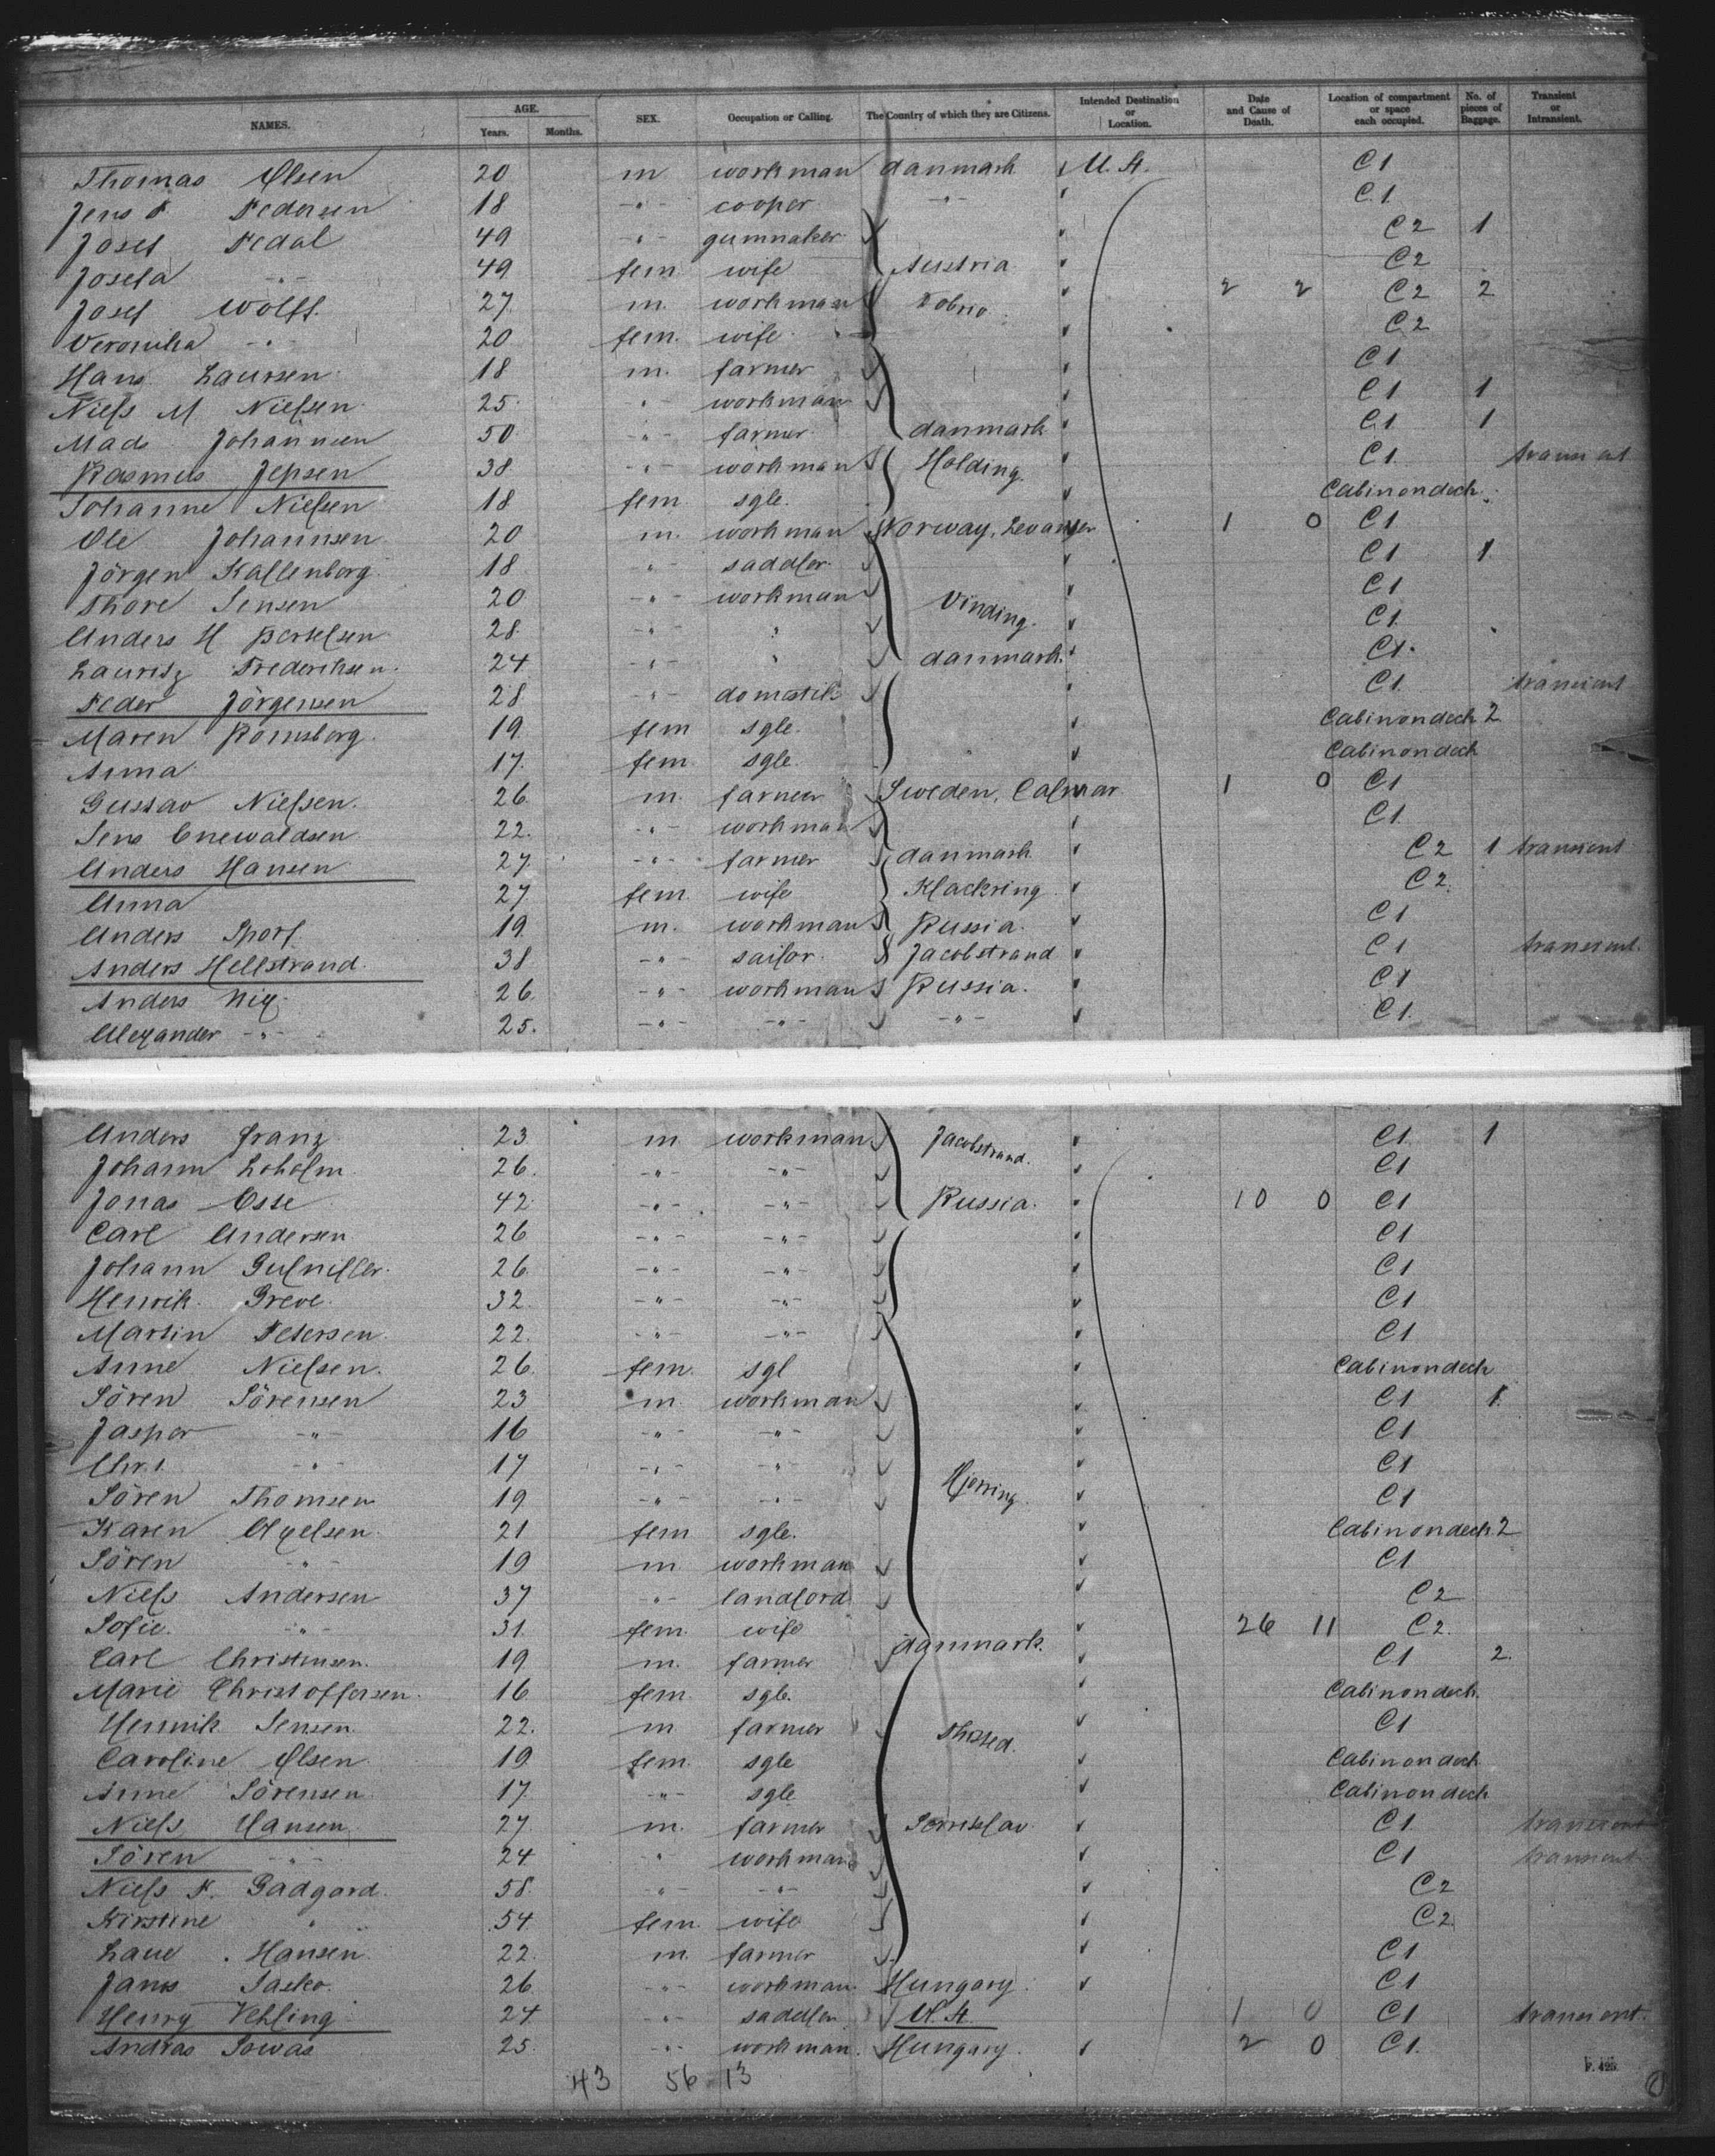 NAMES. AGE. Years. Months. SEX. Occupation or Calling. The Country of which they are Citizens. Intended Destination or Location. Date and Cause of Death. Location of compartment or space each occupied. No. of pieces of Baggage. Transient or Intransient.
Thomas Olsen 20 m workman danmark U.St. C1
Jens P. Pedersen 18 -"- cooper -"- C1
Josef Pedal 49 -"- gunmaker C2 1
Josefa -"- 49 fem wife Austria C2
Josef Wolff. 27 m. workman 2 2 C2 2
Veronika -"- 20 fem. wife C2
Hans Laursen 18 m. farmer C1
Niels M Nielsen 25 " workman C1 1
Mads Johannsen 50 -"- farmer danmark C1 1
Rasmus Jepsen 38 -"- workman Holding. C1 transient
Johanne Nielsen 18 fem. sgle. Cabin on deck
Ole Johannsen 20 m. workman Norway, Levanger 1 0 C1
Jörgen Kallenborg 18 -"- saddler C1 1
Thore Jensen 20 -"- workman Vinding. C1
Anders H Bertelsen 28 -"- " C1
Lauritz Frederiksen 24 -"- " danmark. C1
Peder Jörgensen 28 -"- domestik C1 transient
Maren Romsborg 19 fem sgle. Cabin on deck 2
Anna 17 fem sgle Cabin on deck
Gustav Nielsen. 26 m. farmer Sweden, Calmar 1 0 C1
Jens Enewaldsen 22. -"- workman C1
Anders Hansen 27 -"- farmer danmark C2 1 transient
Anna 27 fem. wife Klackring C2
Anders Sport 19 m. workman Russia. C1
Anders Hellstrand 38 -"- sailor Jacobstrand C1 transient.
Anders Nix 26 -"- workman Russia. C1
Alexander -"- 25. -"- -"- -"- C1
Anders Franz 23 m workman Jacobstrand. C1 1
Johann Loholm 26. -"- -"- C1
Jonas Esse 42 -"- -"- Russia. 10 0 C1
Carl Andersen 26 -"- -"- C1
Johann 26 -"- -"- C1
Henrik Greve. 32. -"- -"- C1
Martin Petersen 22. -"- -"- C1
Anne Nielsen. 26. fem. sgl Cabin on deck
Sören Sörensen 23 m. workman C1 1.
Jasper -"- 16 -"- -"- C1
Chr. -"- 17 -"- -"- C1
Sören Thomsen 19 -"- -"- Hjörring C1
Karen Axelsen 21 fem sgle. Cabin on deck 2
Sören -"- 19 m workman C1
Niels Andersen 37 -"- landlord C2
Sofie. -"- 31. fem. wife 26 11 C2.
Carl Christensen. 19 m. farmer danmark. C1 2.
Marie Christoffersen. 16 fem. sgle. Cabin on deck.
Henrik Jensen 22. m farmer Thisted. C1
Caroline Olsen 19 fem. sgle Cabin on deck
Anne Sörensen 17. -"- sgle Cabin on deck
Niels Hansen. 27 m. farmer C1 transient
Sören -"- 24 " workman C1 transient
Niels P. Gadgard. 58. -"- -"- C2
Kirstine " 54 fem. wife C2
Laue Hansen 22. m. farmer C1
Janos 26 -"- workman. Hungary. C1
Henry Vehling 24 -"- saddler U.St. 1 0 C1 transient.
Andras Sowas 25. -"- workman. Hungary. 2 0 C1.
43 56 13
F. 425.